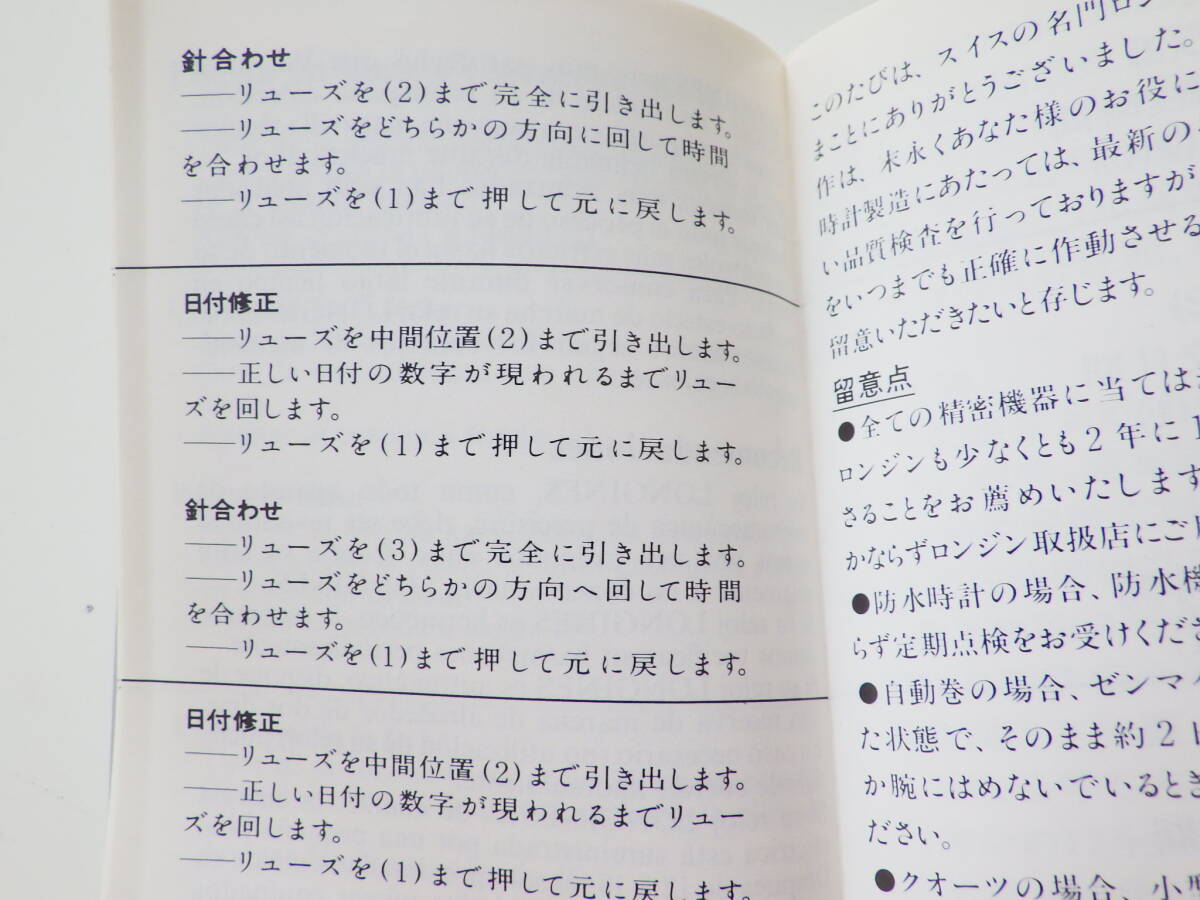 針合わせ
——リューズを(2)まで完全に引き出します。
——リューズをどちらかの方向に回して時間
を合わせます。
——リューズを(1)まで押して元に戻します。
日付修正
——リューズを中間位置(2)まで引き出します。
——正しい日付の数字が現われるまでリュー
ズを回します。
——リューズを(1)まで押して元に戻します。
針合わせ
——リューズを(3)まで完全に引き出します。
——リューズをどちらかの方向へ回して時間
を合わせます。
——リューズを(1)まで押して元に戻します。
日付修正
——リューズを中間位置(2)まで引き出します。
——正しい日付の数字が現われるまでリュー
ズを回します。
——リューズを(1)まで押して元に戻します。
このたびは、スイスの名門ロン
まことにありがとうございました。
作は、末永くあなた様のお役に
時計製造にあたっては、最新の
い品質検査を行っておりますが
をいつまでも正確に作動させる
留意いただきたいと存じます。
留意点
●全ての精密機器に当てはま
ロンジンも少なくとも2年に1
さることをお薦めいたします
かならずロンジン取扱店にご
●防水時計の場合、防水機
らず定期点検をお受けくださ
●自動巻の場合、ゼンマイ
た状態で、そのまま約2日
か腕にはめないでいるとき
ださい。
●クオーツの場合、小型